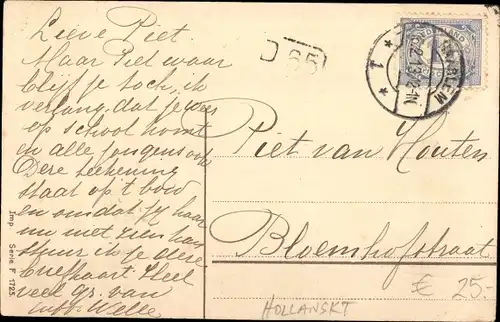 Lieve Piet.
Maar Piet waar
blijf je toch, ik
verlang dat je weer
op school komt
en alle jongens ook
Deze teekening
staat op 't bord
en omdat jij haar
nu niet zien kan
stuur ik je deze
briefkaart. Heel
veel gr. van
Juff. Welle
Imp Serie F 1725
65
NEDERLAND
HAARLEM
1
Piet van Houten
Bloemhofstraat
€ 25.-
HOLLANSKT